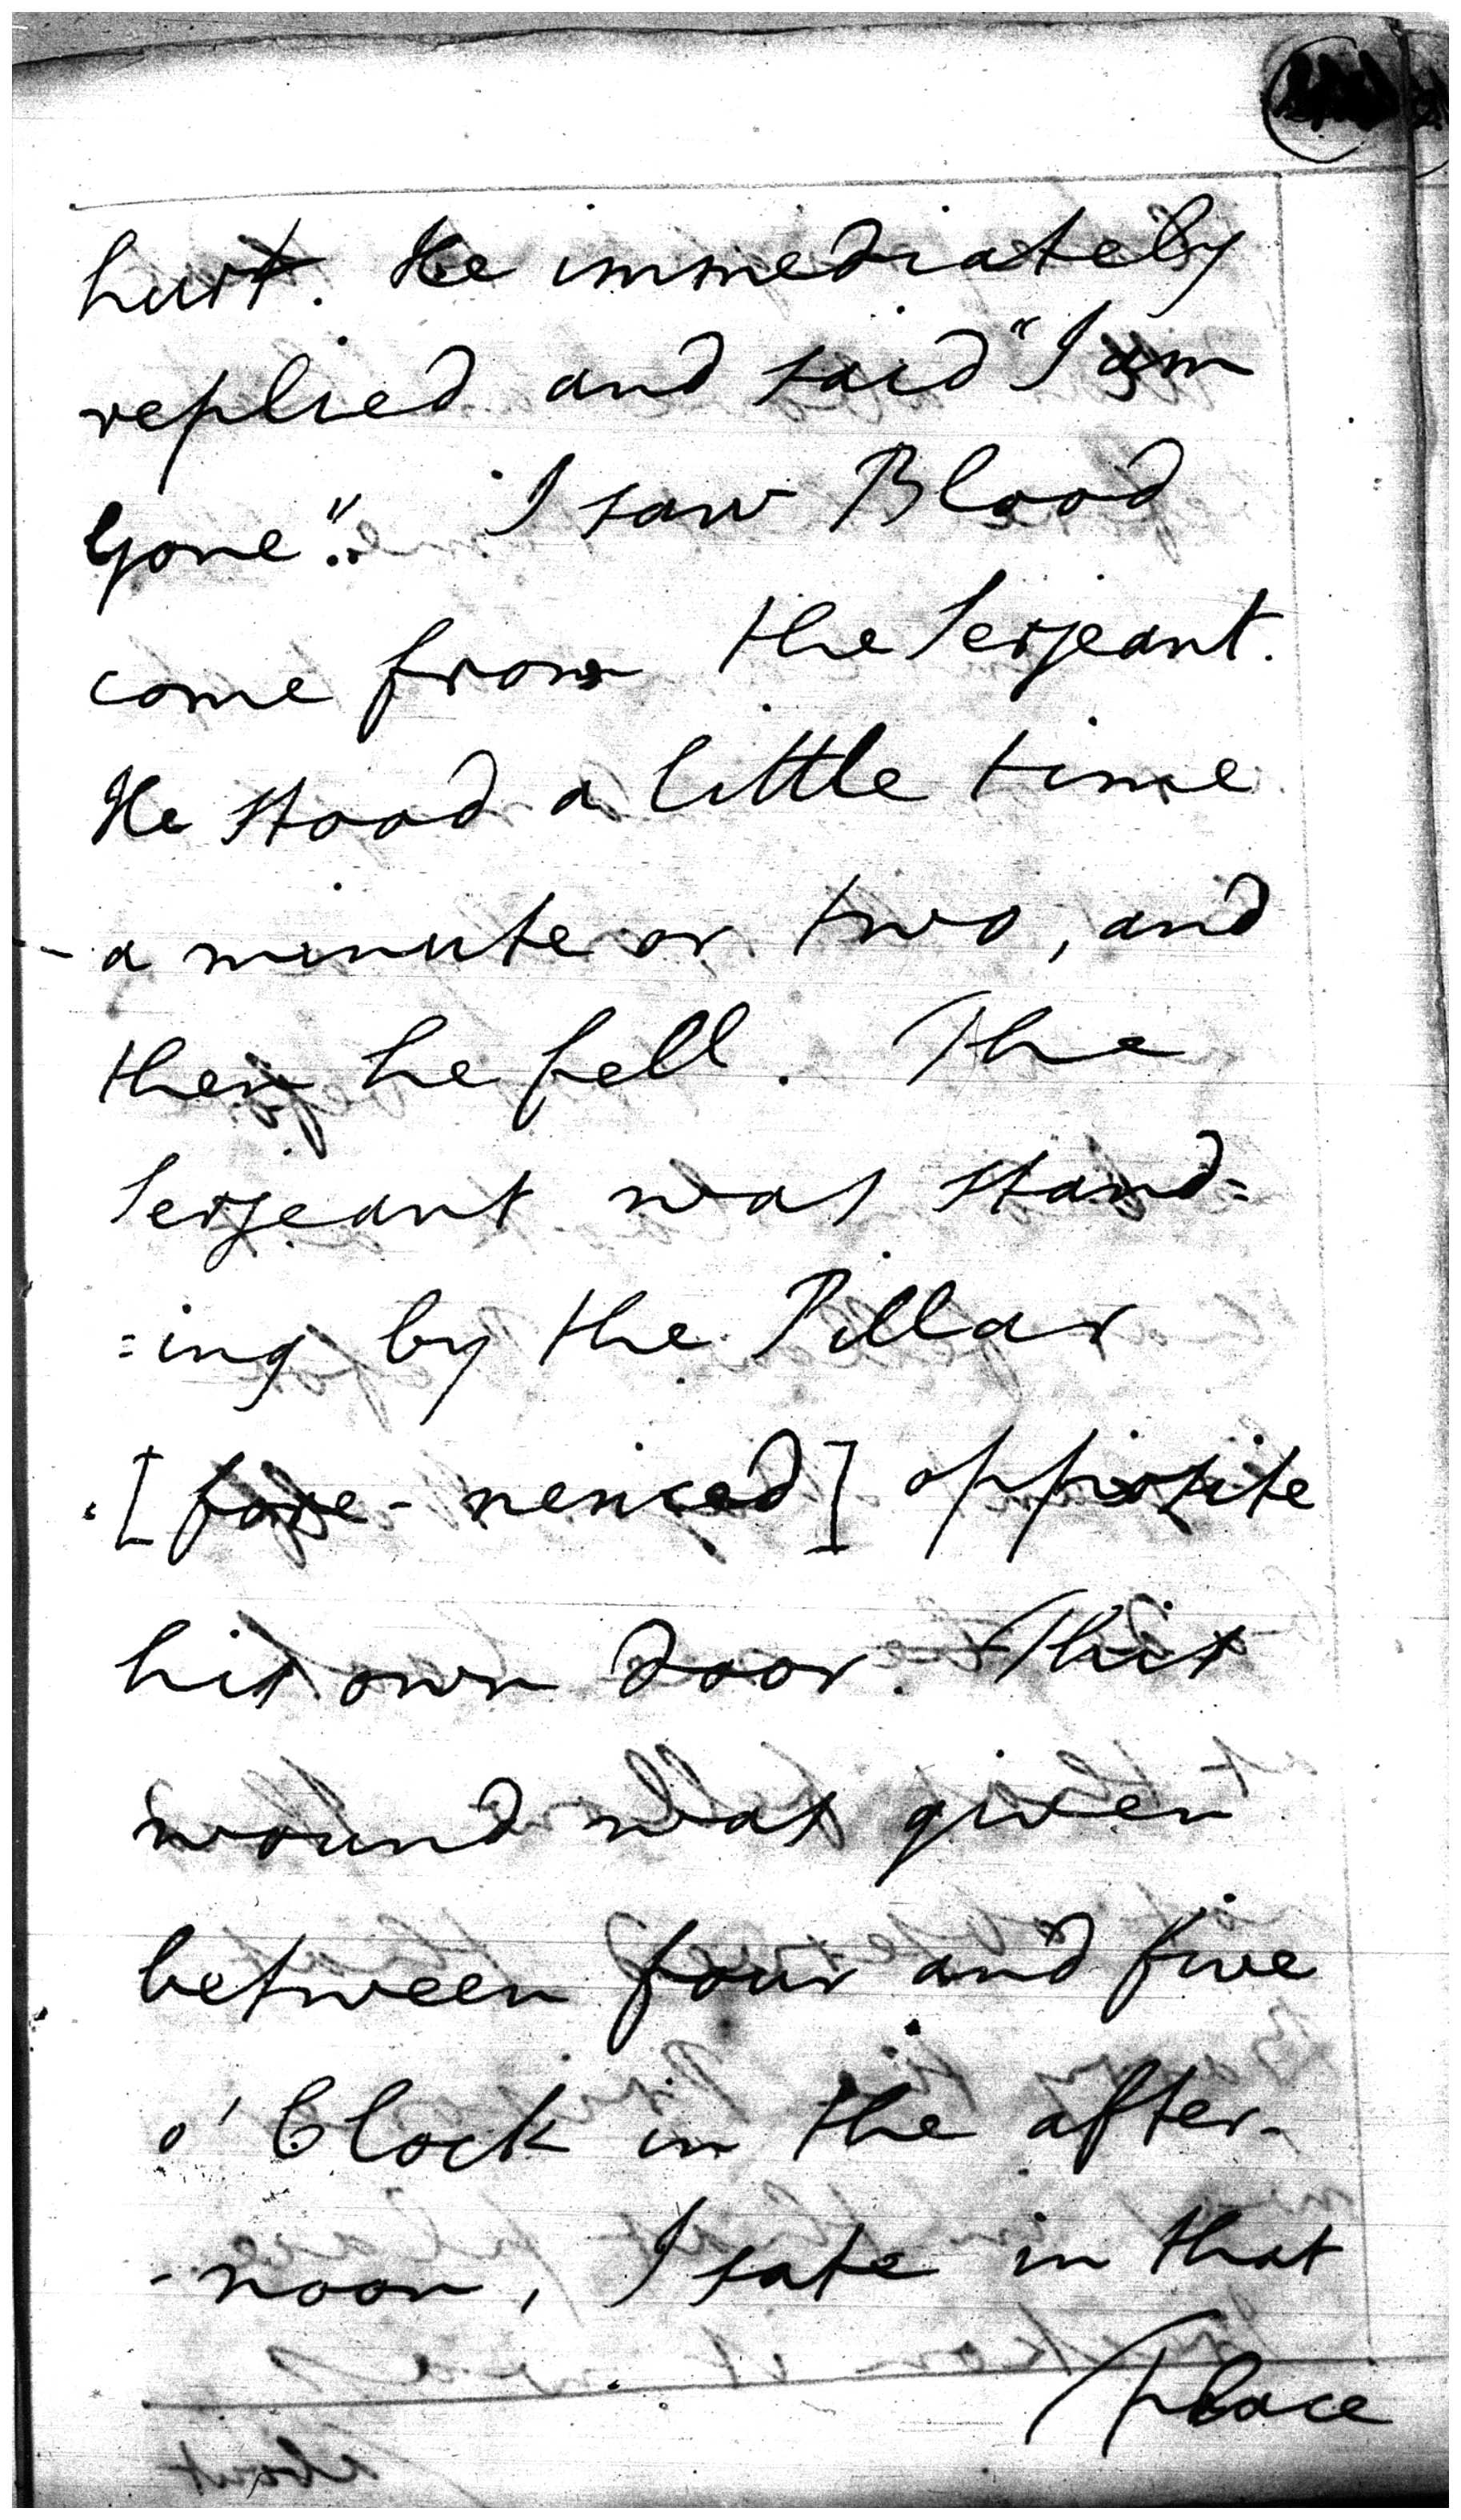 hurt. He immediately
replied and said "I am
Gone". I saw Blood
come from the Serjeant.
He stood a little time
- a minute or two, and
then he fell. The
Serjeant was stand=
=ing by the Pillar
[fore-nenced] opposite
his own door. This
wound was given
between four and five
o'Clock in the after-
-noon, I sate in that
Place